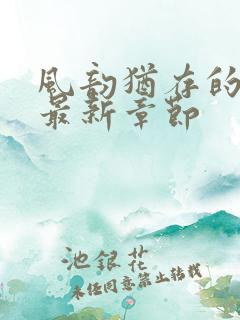 风韵犹存的
最新章节
池银花
未经同意禁止转载